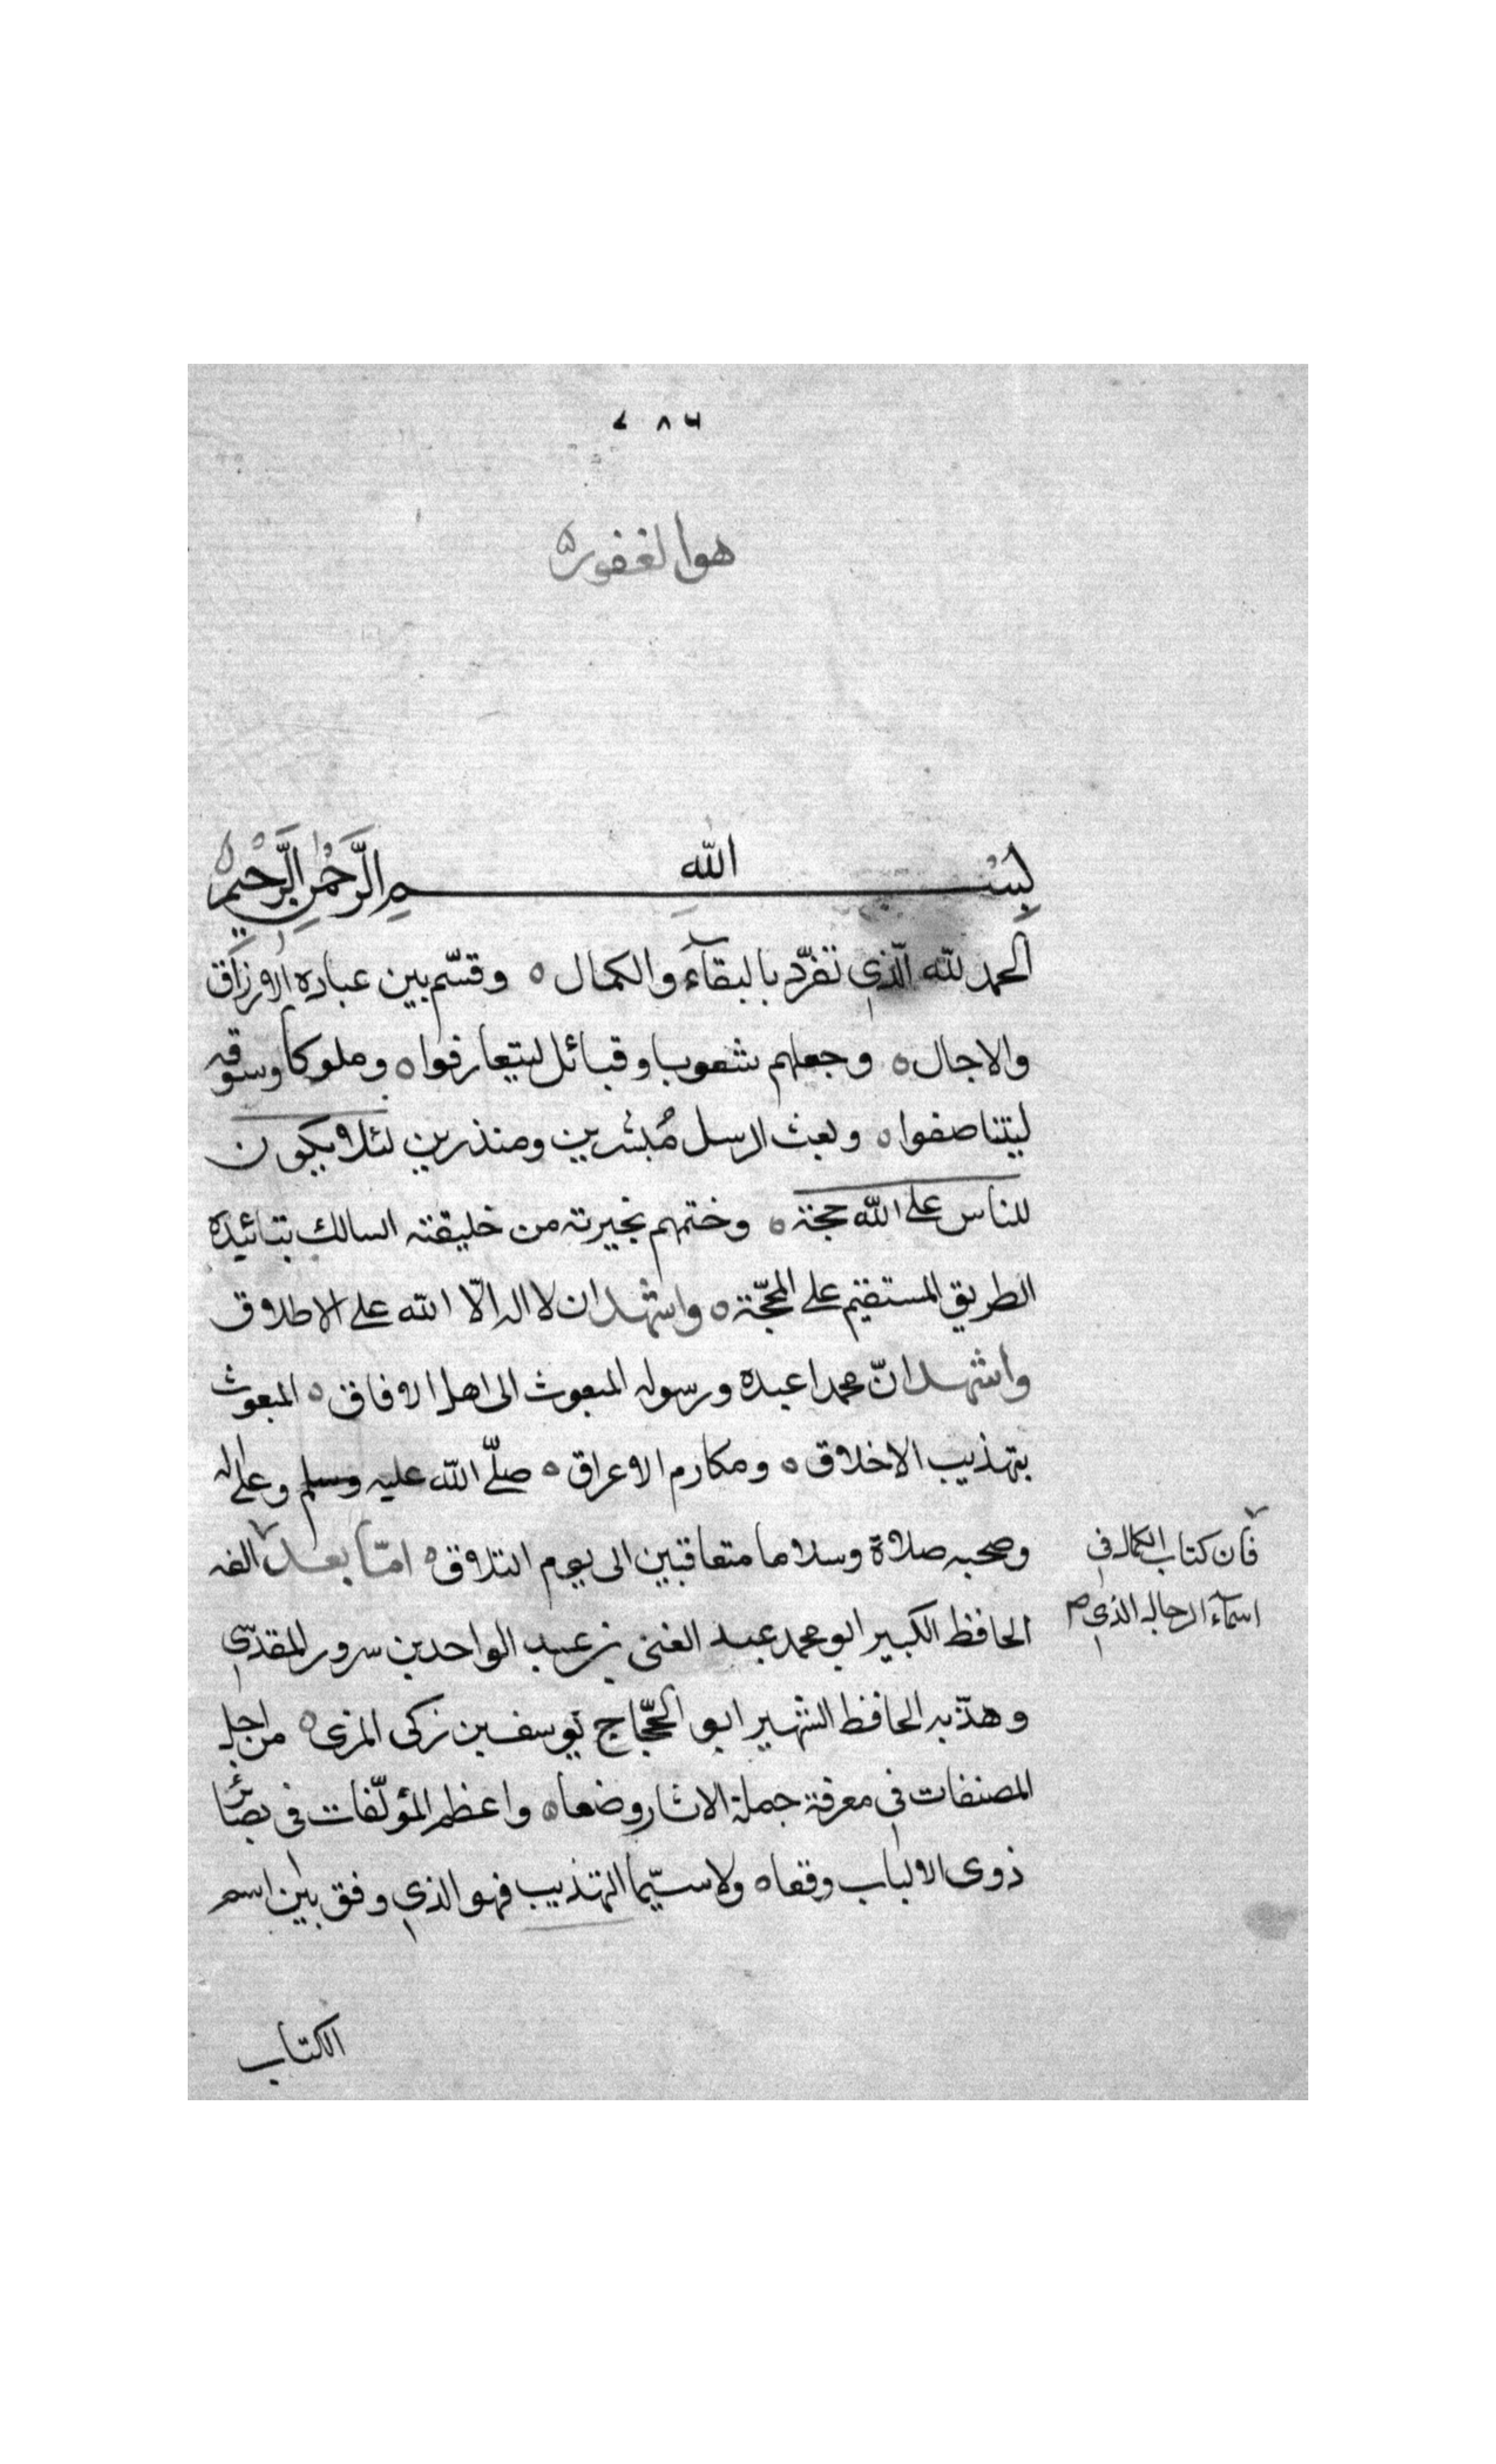 ٧٨٦
هو الغفور
بسم الله الرحمن الرحيم
الحمد لله الذي تفرد بالبقاء والكمال ٥ وقسم بين عباده الارزاق
والاجال ٥ وجعلهم شعوبا وقبائل ليتعارفوا ٥ وملوكا وسوقه
ليتناصفوا ٥ وبعث الرسل مُبشرين ومنذرين لئلا يكون
للناس على الله حجة ٥ وختمهم بخيرته من خليقته السالك بتائيده
الطريق المستقيم على المحجّة ٥ واشهد ان لا اله الّا الله على الاطلاق
واشهد انّ محمدا عبده ورسوله المبعوث الى اهل الافاق ٥ المبعوث
بتهذيب الاخلاق ٥ ومكارم الاعراق ٥ صلّى الله عليه وسلم وعلى اله
وصحبه صلاة وسلاما متعاقبين الى يوم التلاق ٥ امّا بعد الفه
فان كتاب الكمال في
اسمآء الرجال الذي صح
الحافظ الكبير ابو محمد عبد الغنى بن عبد الواحد بن سرور المقدسي
وهذّبه الحافظ الشهير ابو الحجّاج يوسف بن زكى المزى ٥ من اجل
المصنفات في معرفة حملة الاثار وضعا ٥ واعظم المؤلّفات في بصائر
ذوى الالباب وقعا ٥ ولا سيّما التهذيب فهو الذي وفق بين اسم
الكتاب